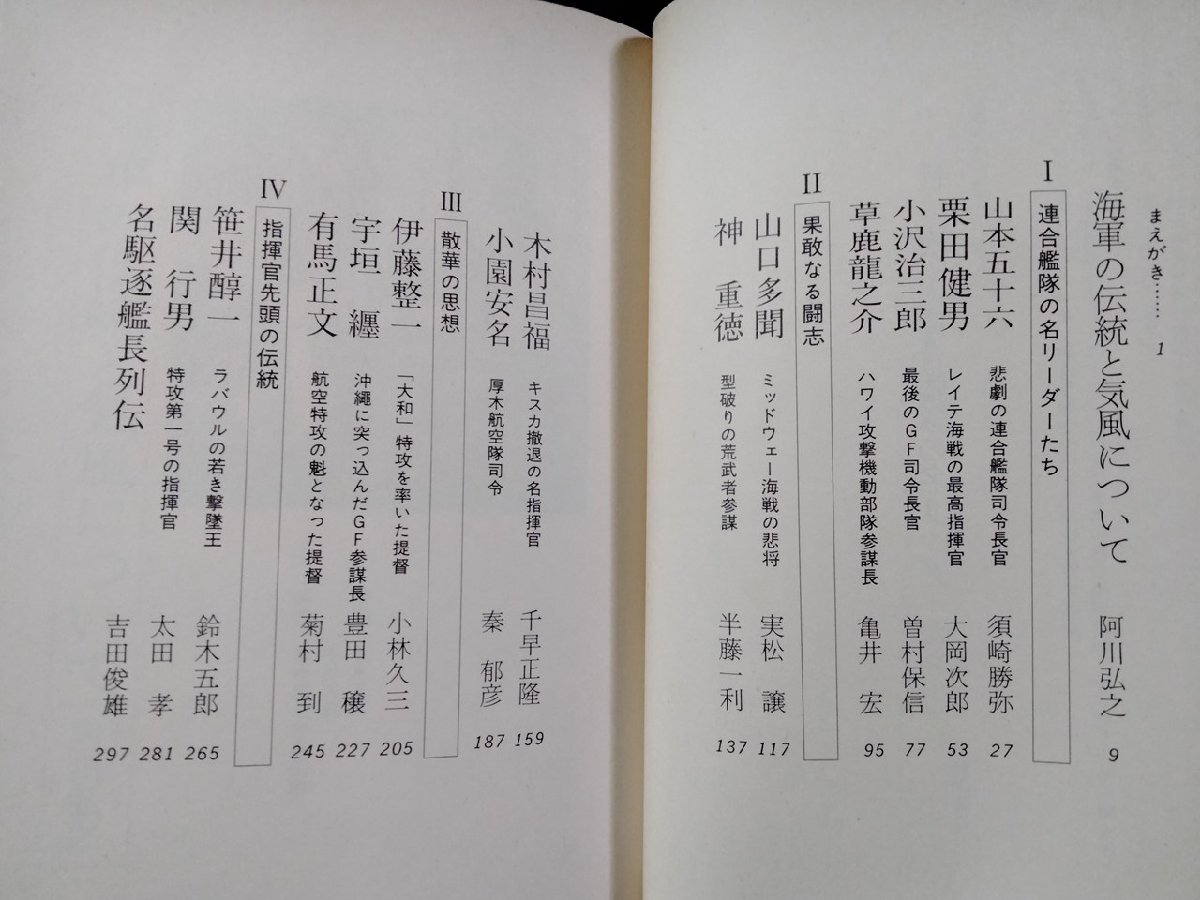 まえがき…… 1
海軍の伝統と気風について 阿川弘之 9
I 連合艦隊の名リーダーたち
山本五十六 悲劇の連合艦隊司令長官 須崎勝弥 27
栗田健男 レイテ海戦の最高指揮官 大岡次郎 53
小沢治三郎 最後のGF司令長官 曽村保信 77
草鹿龍之介 ハワイ攻撃機動部隊参謀長 亀井 宏 95
II 果敢なる闘志
山口多聞 ミッドウェー海戦の悲将 実松 譲 117
神 重徳 型破りの荒武者参謀 半藤一利 137
木村昌福 キスカ撤退の名指揮官 千早正隆 159
小園安名 厚木航空隊司令 秦 郁彦 187
III 散華の思想
伊藤整一 「大和」特攻を率いた提督 小林久三 205
宇垣 纏 沖縄に突っ込んだGF参謀長 豊田 穣 227
有馬正文 航空特攻の魁となった提督 菊村 到 245
IV 指揮官先頭の伝統
笹井醇一 ラバウルの若き撃墜王 鈴木五郎 265
関 行男 特攻第一号の指揮官 太田 孝 281
名駆逐艦長列伝 吉田俊雄 297